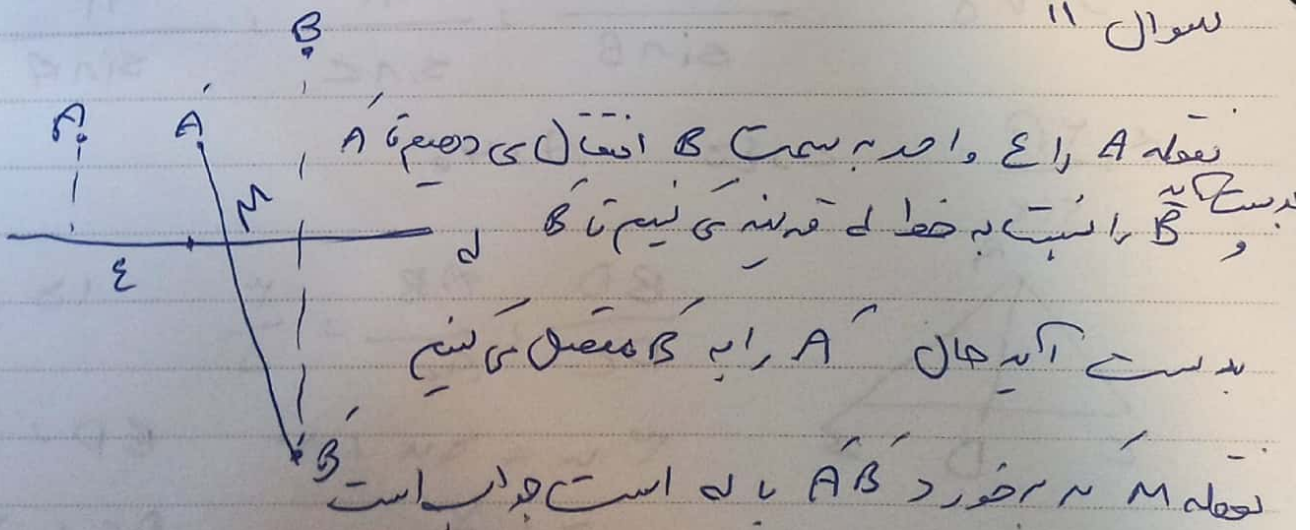 سوال ۱۱
B
A
A′
M
d
۴
B′
نقطه A را ۴ واحد به سمت B انتقال می دهیم تا A′
بدست آید
و B را نسبت به خط d قرینه می کنیم تا B′
بدست آید حال A′ را به B′ متصل می کنیم
نقطه M که برخورد A′B′ با d است جواب است